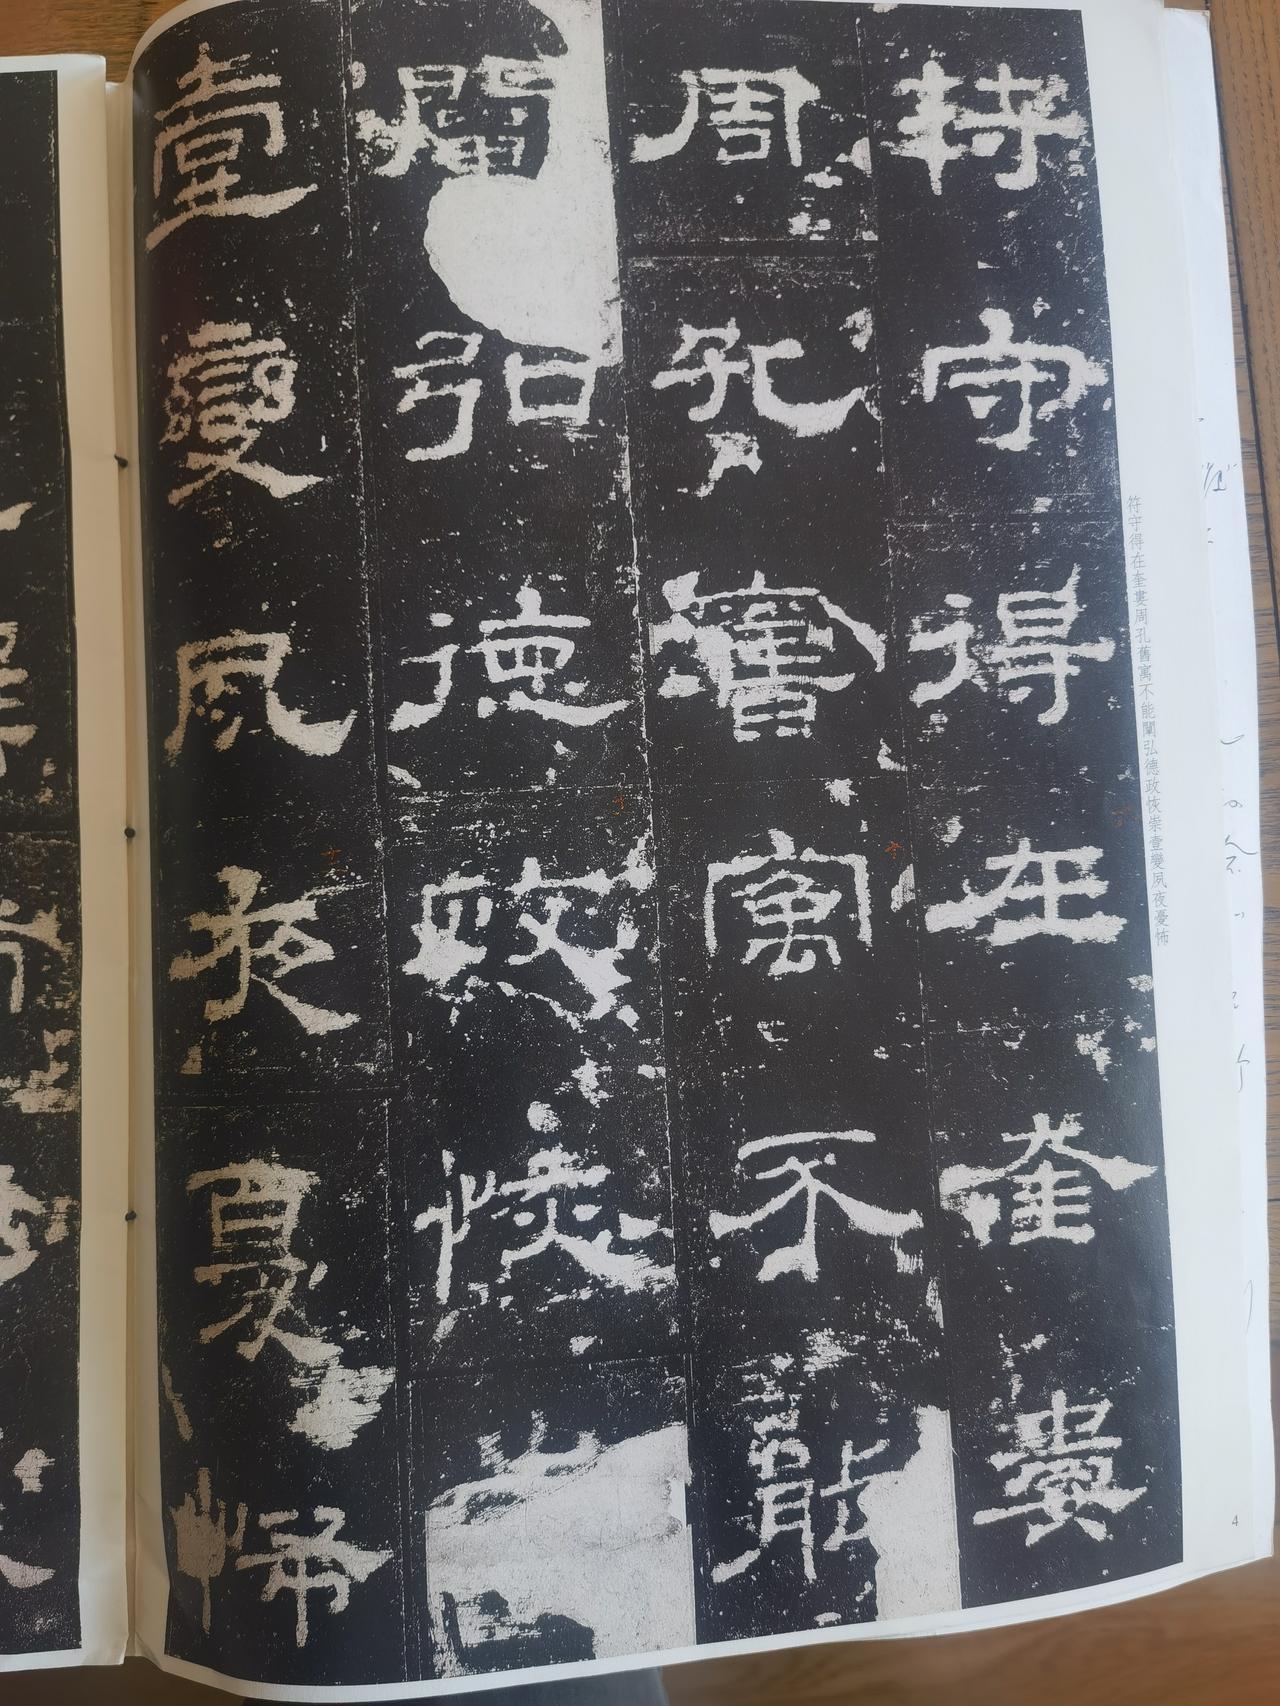 符守得在奎婁
周孔舊寓不能
闡弘德政恢崇
壹變夙夜憂怖
符守得在奎婁周孔舊寓不能闡弘德政恢崇壹變夙夜憂怖
4